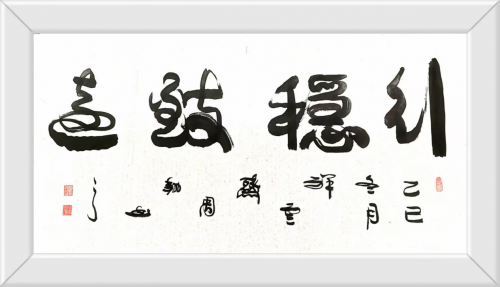 行穩致遠
乙巳
冬月
祥雲
周
山